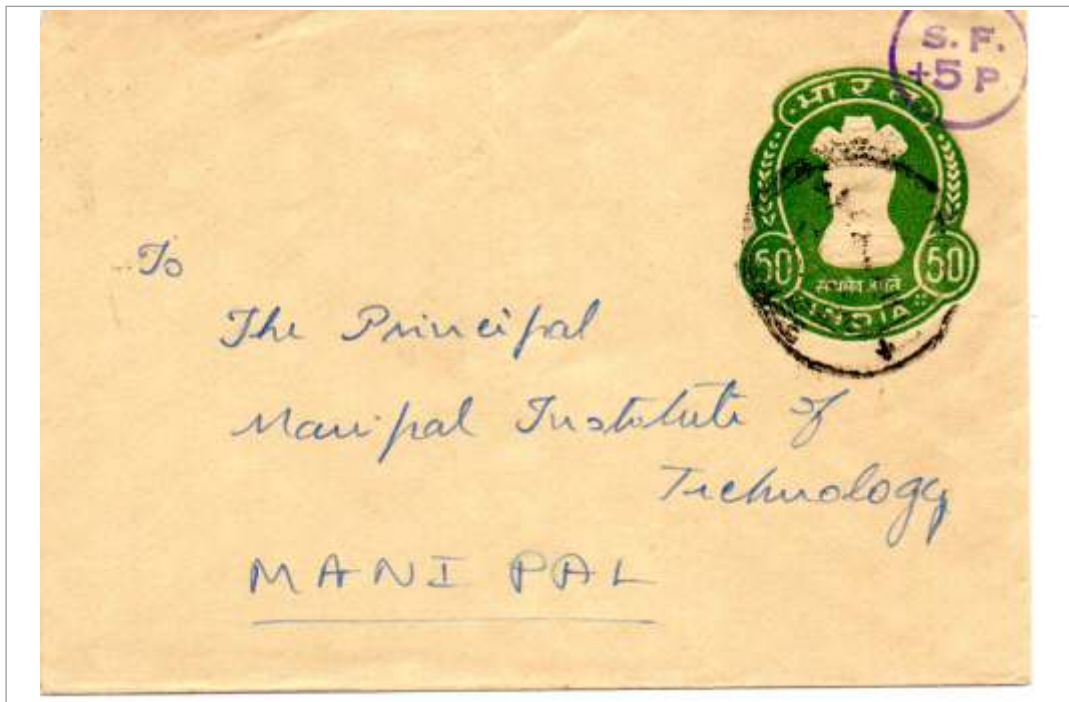 S. F.
+5 P
भारत
50 50
सत्यमेव जयते
INDIA
To
The Principal
Manipal Institute of
Technology
MANIPAL